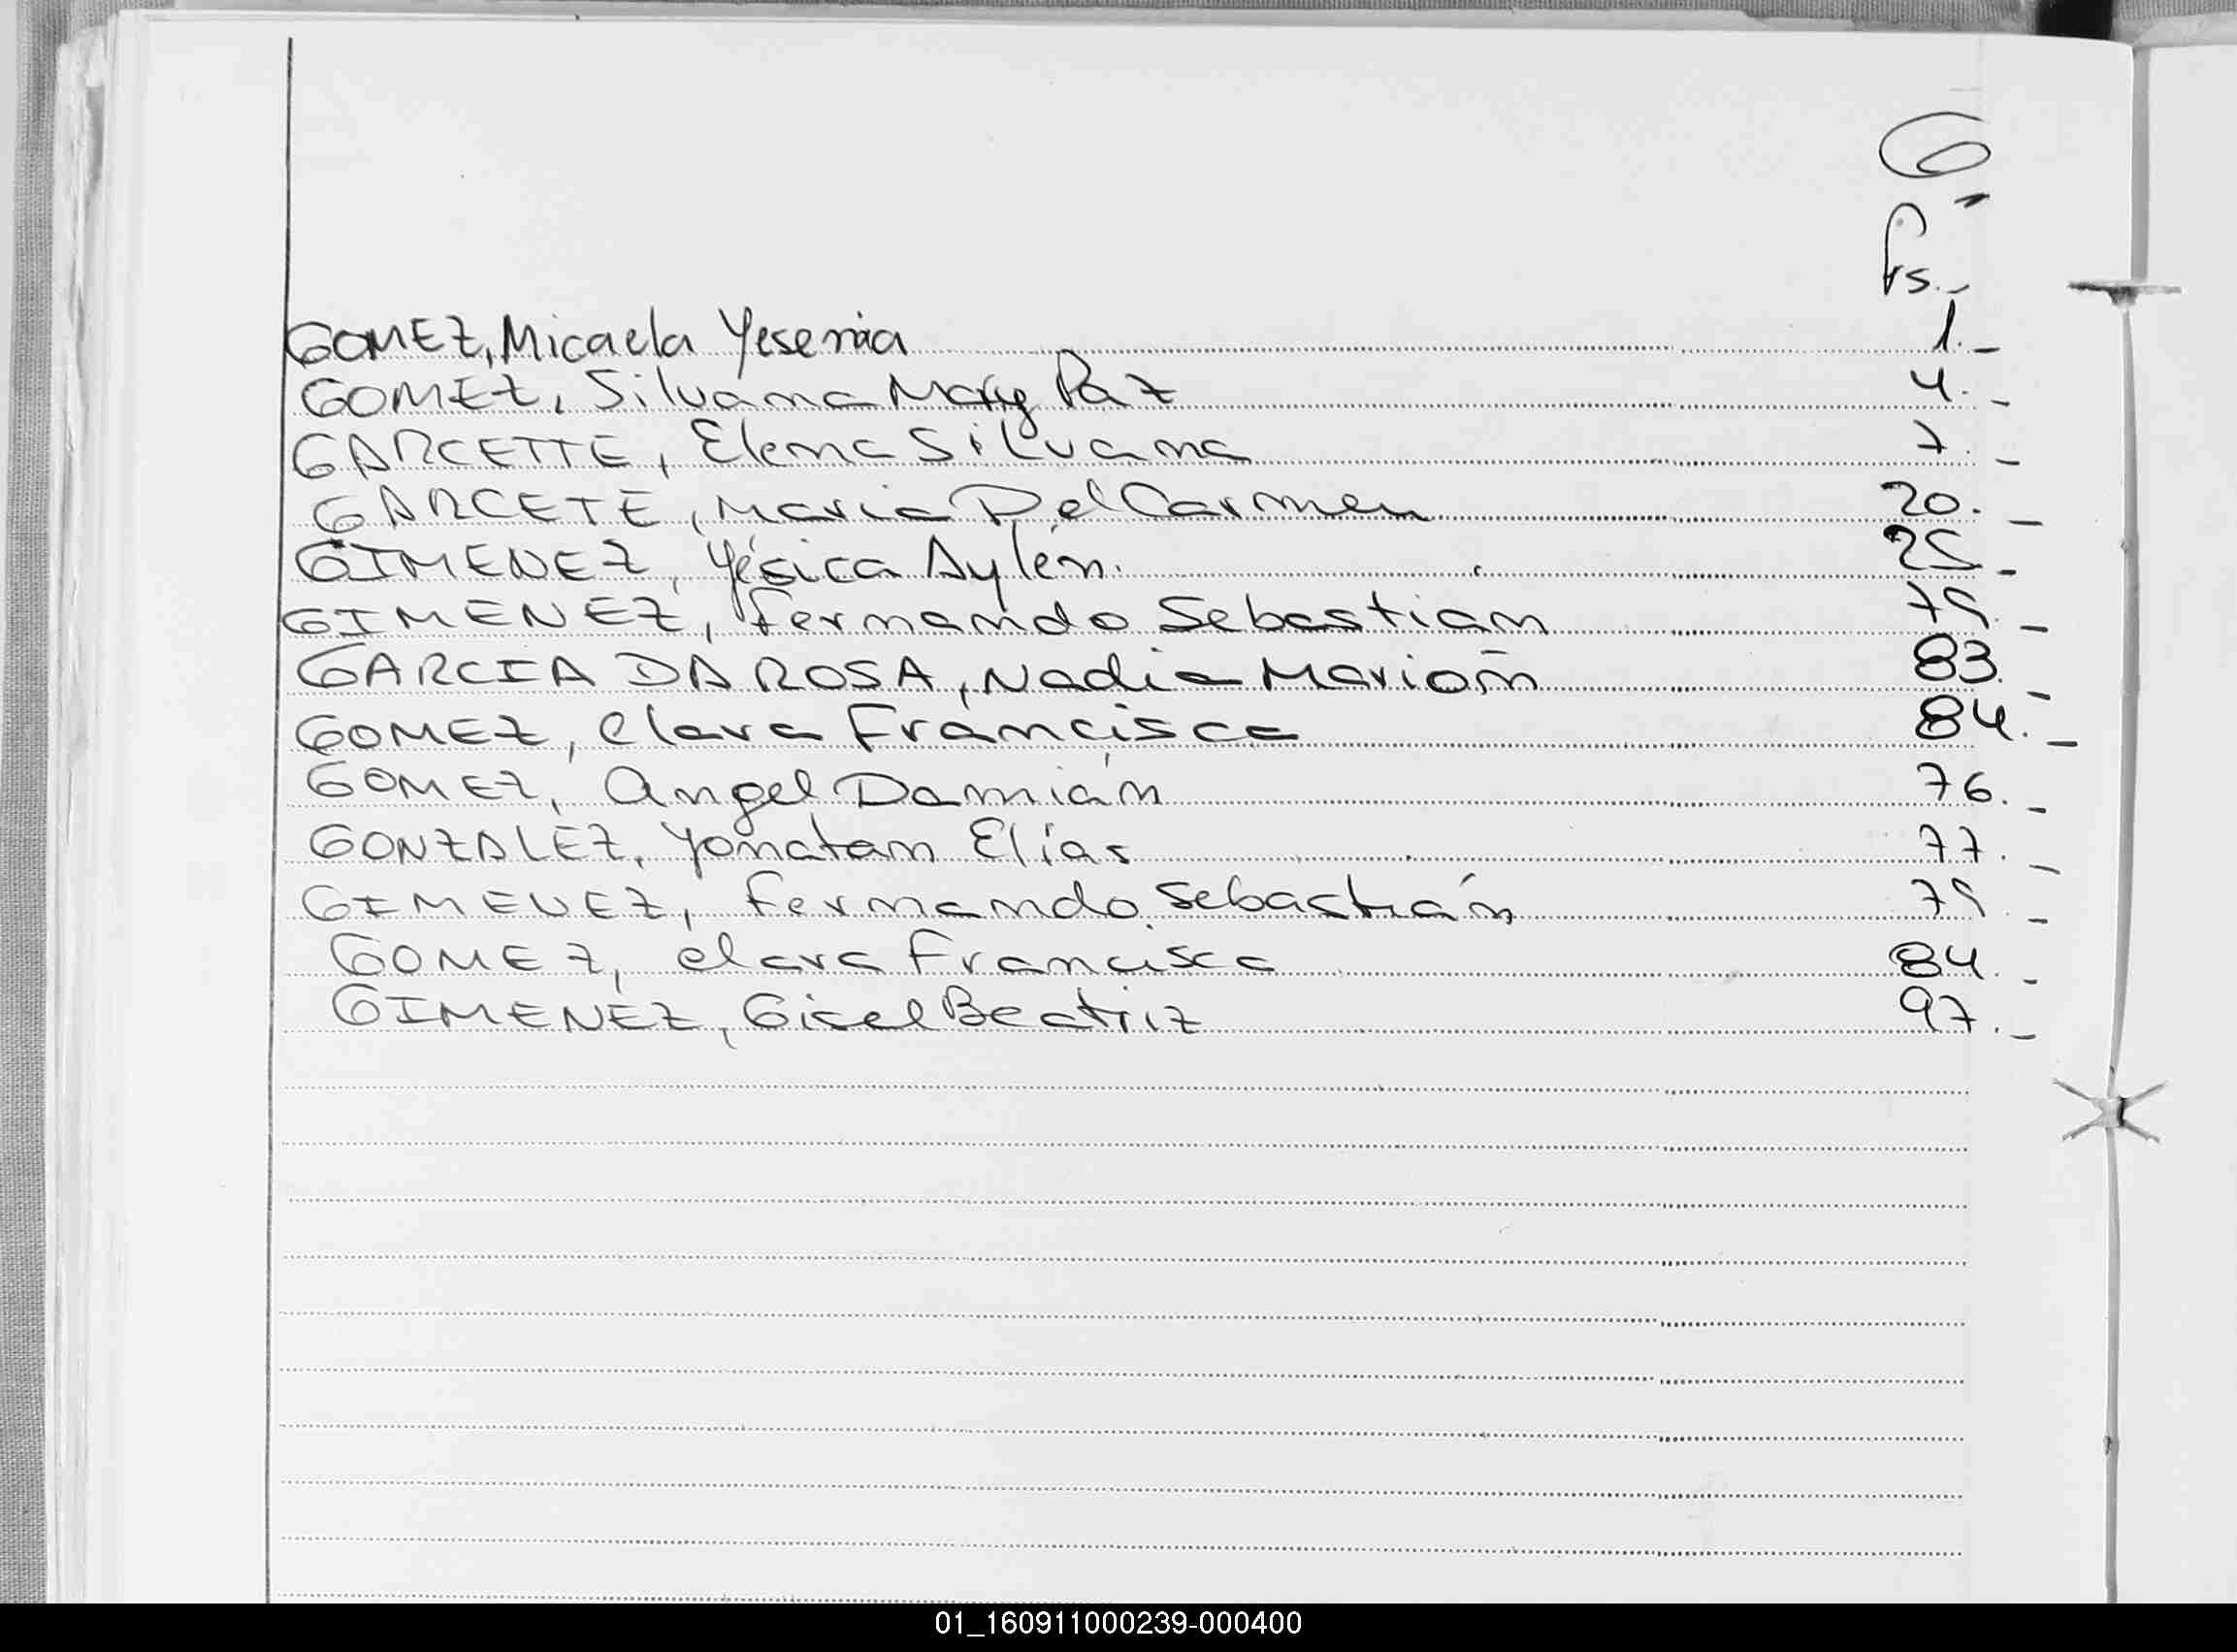 G
Fs.-
GOMEZ, Micaela Yesenia 1.-
GOMEZ, Silvana Mary Paz 4.-
GARCETTE, Elena Silvana 7.-
GARCETE, Maria Del Carmen 20.-
GIMENEZ, Yésica Aylén. 25.-
GIMENEZ, Fernando Sebastian 79.-
GARCIA DA ROSA, Nadia Marion 83.-
GOMEZ, Clara Francisca 84.-
GOMEZ, Angel Damián 76.-
GONZALEZ, Yonatan Elías 77.-
GIMENEZ, Fernando Sebastián 79.-
GOMEZ, Clara Francisca 84.-
GIMENEZ, Gisel Beatriz 97.-
01_160911000239-000400